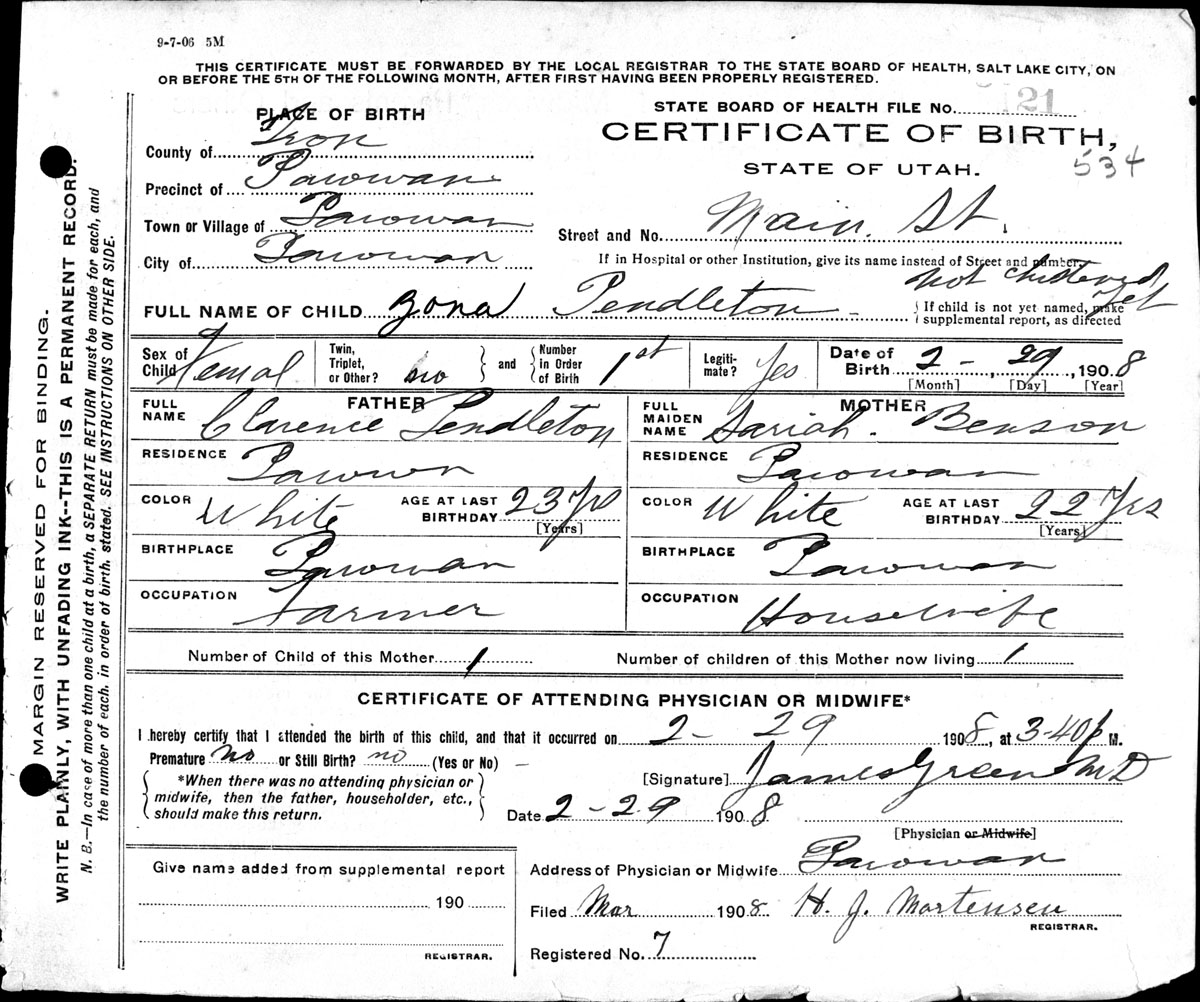 9-7-06 5M
THIS CERTIFICATE MUST BE FORWARDED BY THE LOCAL REGISTRAR TO THE STATE BOARD OF HEALTH, SALT LAKE CITY, ON
OR BEFORE THE 5TH OF THE FOLLOWING MONTH, AFTER FIRST HAVING BEEN PROPERLY REGISTERED.
PLACE OF BIRTH
County of Iron
Precinct of Parowan
Town or Village of Parowan
City of Parowan
STATE BOARD OF HEALTH FILE No. 121
CERTIFICATE OF BIRTH,
STATE OF UTAH.
534
Street and No. Main. St.
If in Hospital or other Institution, give its name instead of Street and number.
not christened yet
FULL NAME OF CHILD Zona Pendleton
If child is not yet named, make
supplemental report, as directed
Sex of Child Femal
Twin, Triplet, or Other? no
and Number in Order of Birth 1st
Legitimate? Yes
Date of Birth 2 - 29, 1908
[Month] [Day] [Year]
FATHER
FULL NAME Clarence Pendleton
RESIDENCE Parown
COLOR White AGE AT LAST BIRTHDAY 23 yrs
[Years]
BIRTHPLACE Parowan
OCCUPATION Farmer
MOTHER
FULL MAIDEN NAME Sariah. Benson
RESIDENCE Parowan
COLOR White AGE AT LAST BIRTHDAY 22 Yrs
[Years]
BIRTHPLACE Parowan
OCCUPATION Housewife
Number of Child of this Mother 1 Number of children of this Mother now living 1
CERTIFICATE OF ATTENDING PHYSICIAN OR MIDWIFE*
I hereby certify that I attended the birth of this child, and that it occurred on 2 - 29 1908, at 3-40 p M.
Premature no or Still Birth? no (Yes or No)
*When there was no attending physician or
midwife, then the father, householder, etc.,
should make this return.
[Signature] James Green MD
Date 2 - 29 1908
[Physician or Midwife]
Give name added from supplemental report
190
REGISTRAR.
Address of Physician or Midwife Parowan
Filed Mar 1908 H. J. Mortensen
REGISTRAR.
Registered No. 7
MARGIN RESERVED FOR BINDING.
WRITE PLAINLY, WITH UNFADING INK--THIS IS A PERMANENT RECORD.
N. B.—In case of more than one child at a birth, a SEPARATE RETURN must be made for each, and
the number of each, in order of birth, stated. SEE INSTRUCTIONS ON OTHER SIDE.